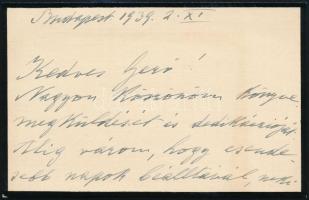 Budapest 1939. 2. XI
Kedves Gerő!
Nagyon köszönöm könyve
megküldését és dedikációját.
Alig várom, hogy csende-
sebb napok beálltával, neki-